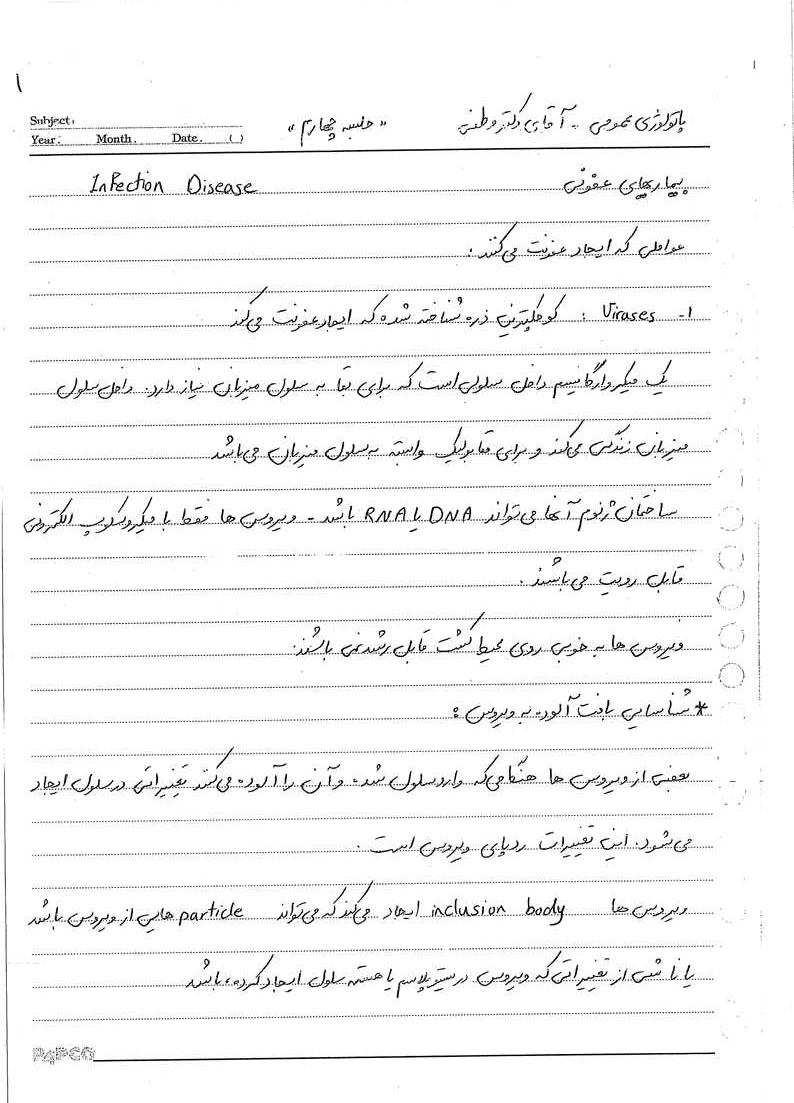 ۱
Subject:
Year. Month. Date. ( )
پاتولوژی عمومی - آقای دکتر وطنی «جلسه چهارم»
بیماریهای عفونی Infection Disease
عواملی که ایجاد عفونت می‌کنند.
۱- Viruses : کوچکترین ذره شناخته شده که ایجاد عفونت می‌کند
یک میکروارگانیسم داخل سلولی است که برای بقا به سلول میزبان نیاز دارد. داخل سلول
میزبان زندگی می‌کند و برای متابولیک وابسته به سلول میزبان می‌باشد
ساختمان ژنوم آنها می‌تواند DNA یا RNA باشد - ویروس ها فقط با میکروسکوپ الکترونی
قابل رویت می باشند.
ویروس ها به خوبی روی محیط کشت قابل رشد نمی باشند.
* شناسایی بافت آلوده به ویروس :
بعضی از ویروس ها هنگامی‌که وارد سلول شده و آن را آلوده می‌کند تغییراتی در سلول ایجاد
می‌شود. این تغییرات ردپای ویروس است.
ویروس ها inclusion body ایجاد می‌کند که می‌تواند particle هایی از ویروس باشد
یا ناشی از تغییراتی که ویروس در سیتوپلاسم یا هسته سلول ایجاد کرده، باشد
PAPCO